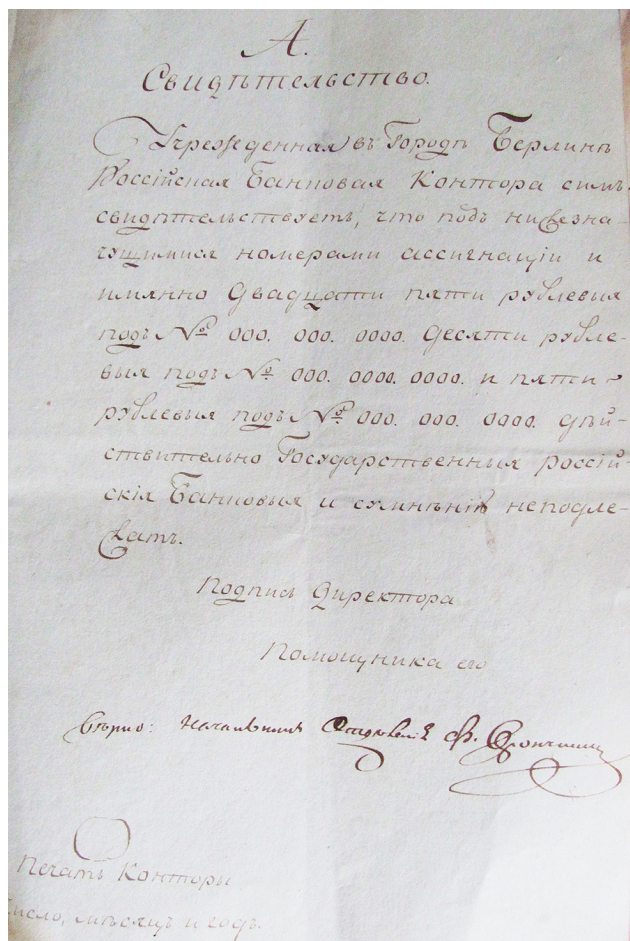 А.
Свидѣтельство.
Учрежденная въ Городѣ Берлинѣ
Россійская Банковая Контора симъ
свидѣтельствуетъ, что подъ нижезна-
чущимися номерами ассигнацiи и
имянно двадцати пяти рублевыя
подъ №ои 000. 000. 0000. десяти рубле-
выя подъ №ои 000. 0000. 0000. и пяти-
рублевыя подъ №ои 000. 000. 0000. дѣй-
ствительно Государственныя россій-
скія Банковыя и сумнѣнію неподле-
жатъ.
Подпись Директора
Помощника его
Вѣрно: Начальникъ Отдѣленія Ф.
Печать Конторы.
Число, мѣсяцъ и годъ.